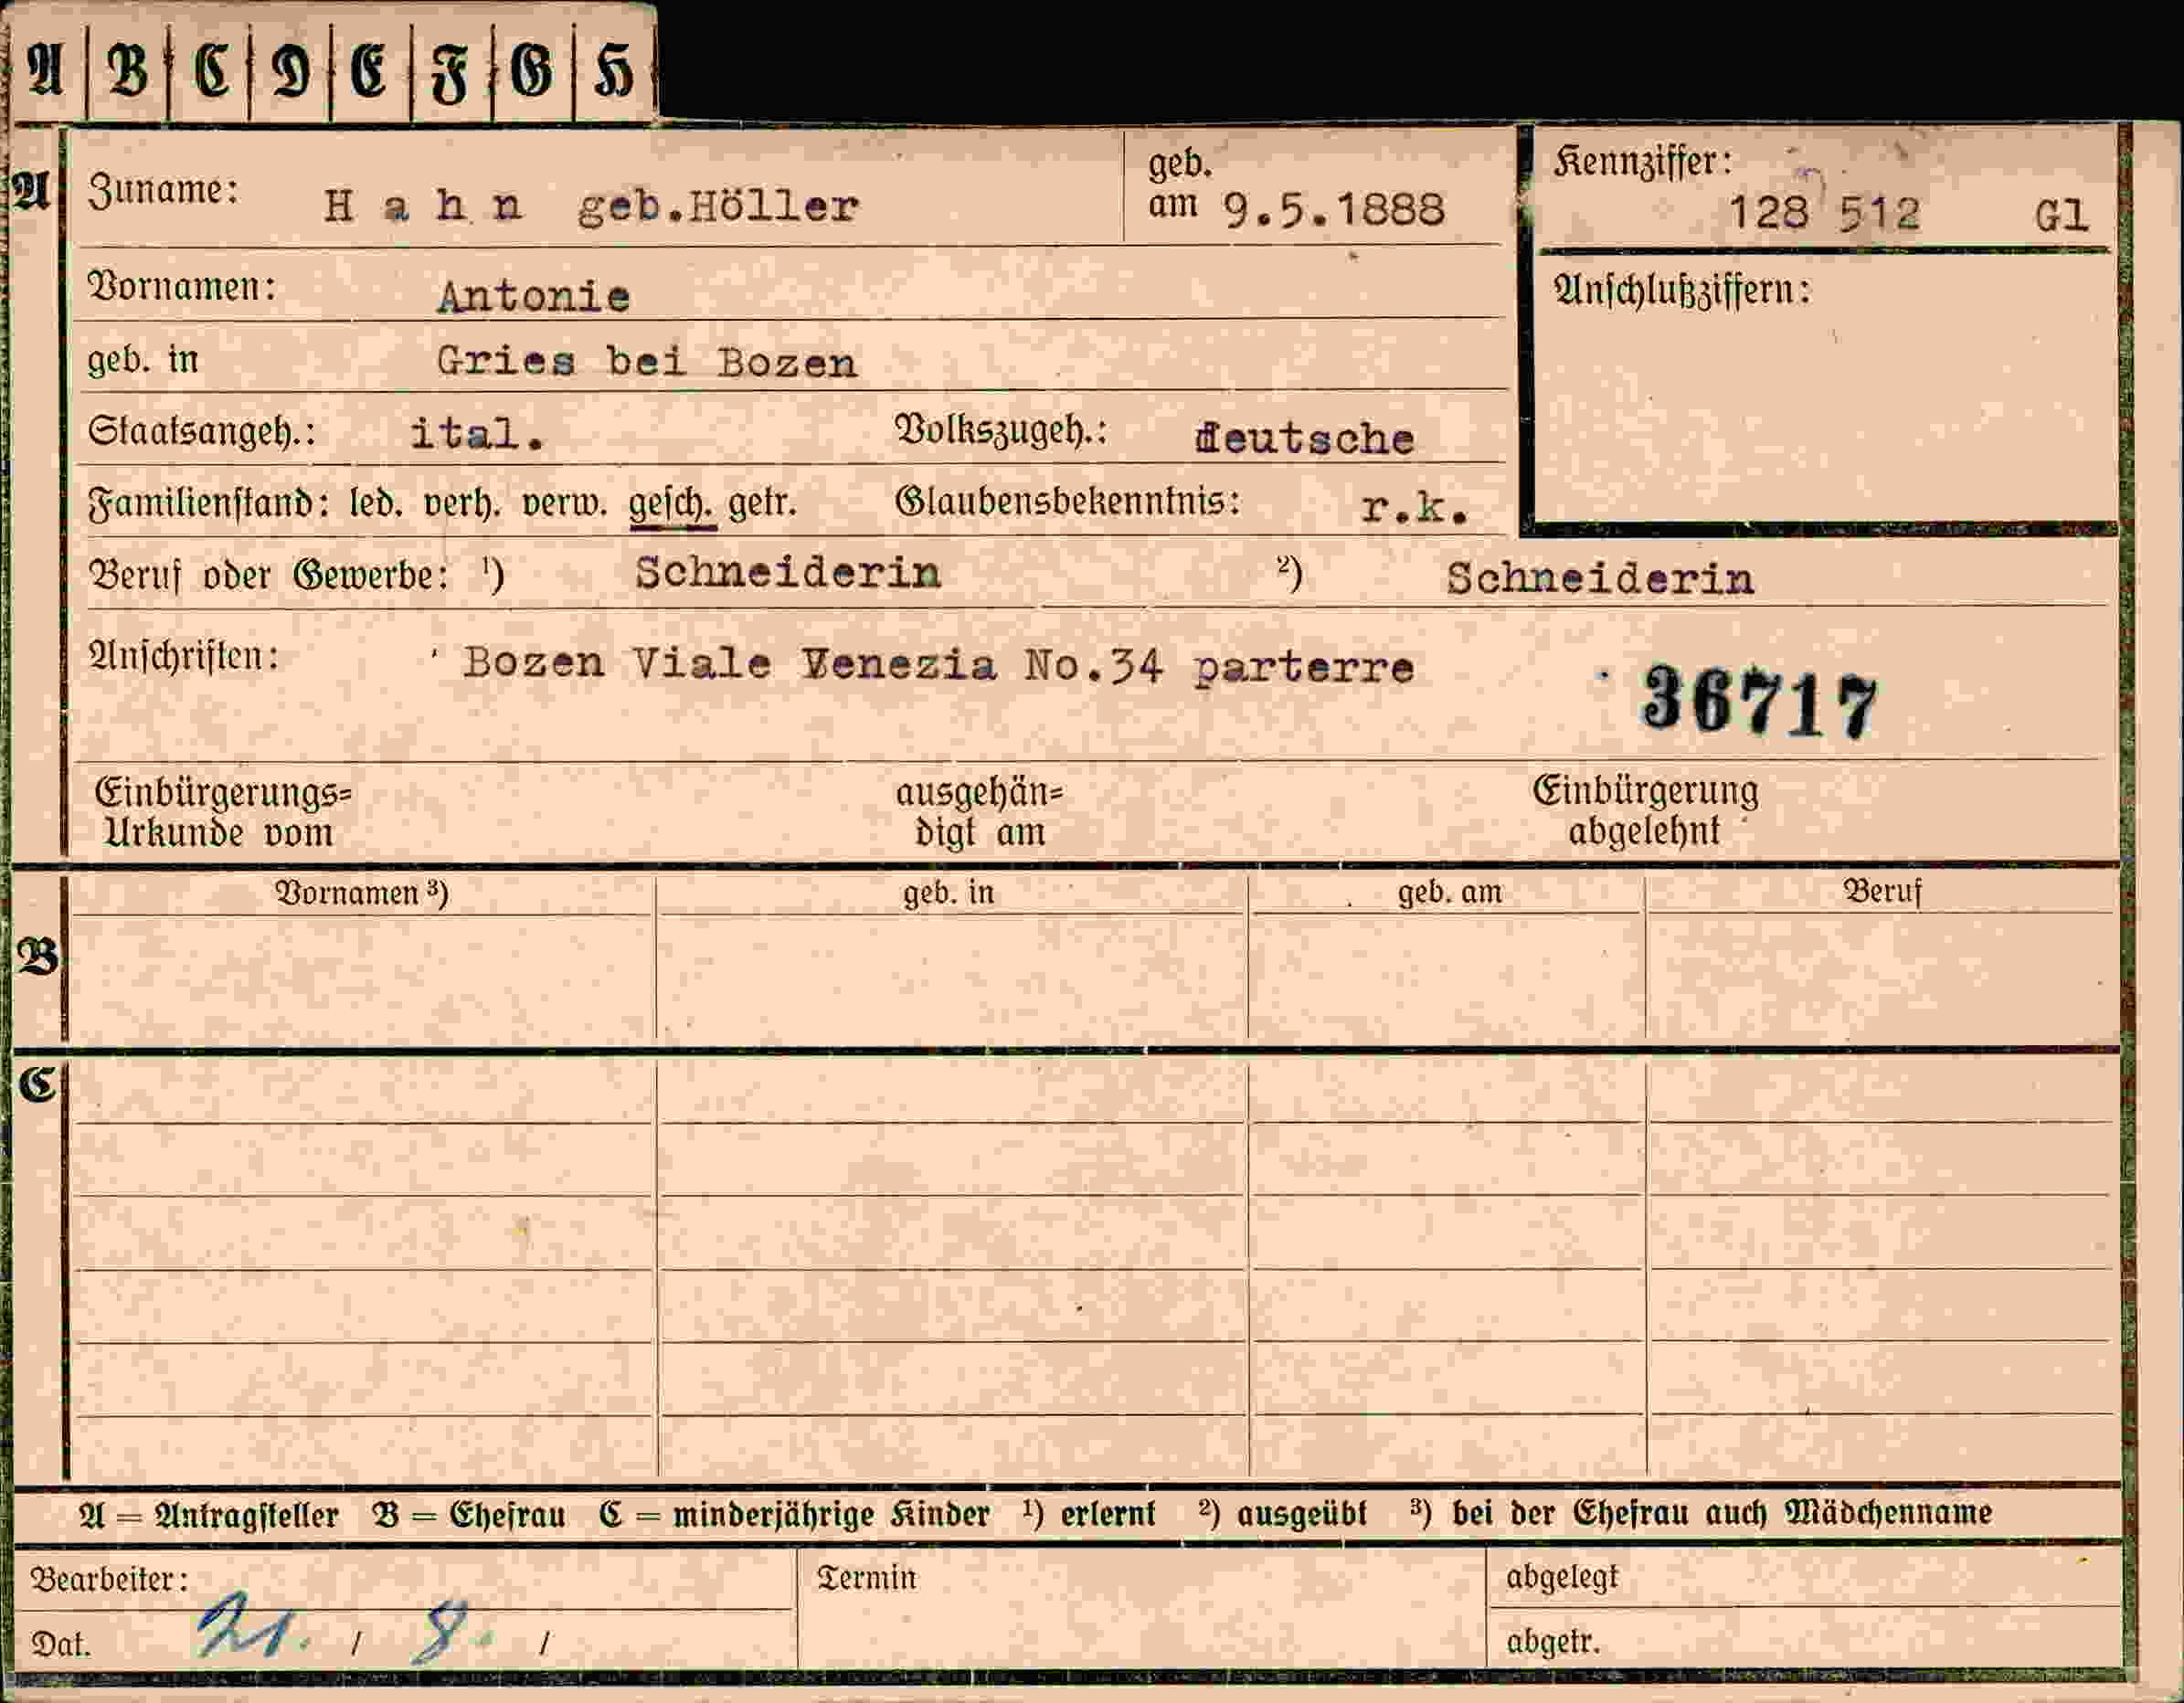 A B C D E F G H
A Zuname: Hahn geb.Höller geb. am 9.5.1888 Kennziffer: 128 512 Gl
Vornamen: Antonie Anschlußziffern:
geb. in Gries bei Bozen
Staatsangeh.: ital. Volkszugeh.: deutsche
Familienstand: led. verh. verw. gesch. getr. Glaubensbekenntnis: r.k.
Beruf oder Gewerbe: ¹) Schneiderin ²) Schneiderin
Anschriften: Bozen Viale Venezia No.34 parterre
36717
Einbürgerungs=
Urkunde vom
ausgehän=
digt am
Einbürgerung
abgelehnt
B Vornamen ³) geb. in geb. am Beruf
C
A = Antragsteller B = Ehefrau C = minderjährige Kinder ¹) erlernt ²) ausgeübt ³) bei der Ehefrau auch Mädchenname
Bearbeiter: Termin abgelegt
Dat. 21. / 8. / abgetr.